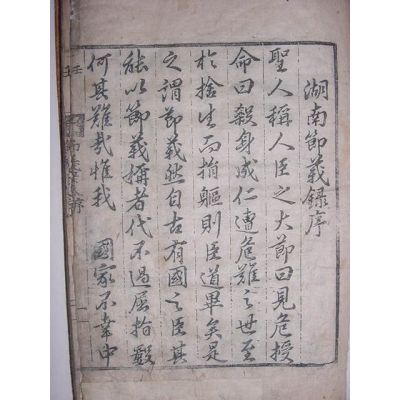 湖南節義錄序
聖人稱人臣之大節曰見危授
命曰殺身成仁遭危難之世至
於捨生而捐軀則臣道畢矣是
之謂節義然自古有國之臣其
能以節義稱者代不過屈指數
何其難哉惟我 國家不幸中